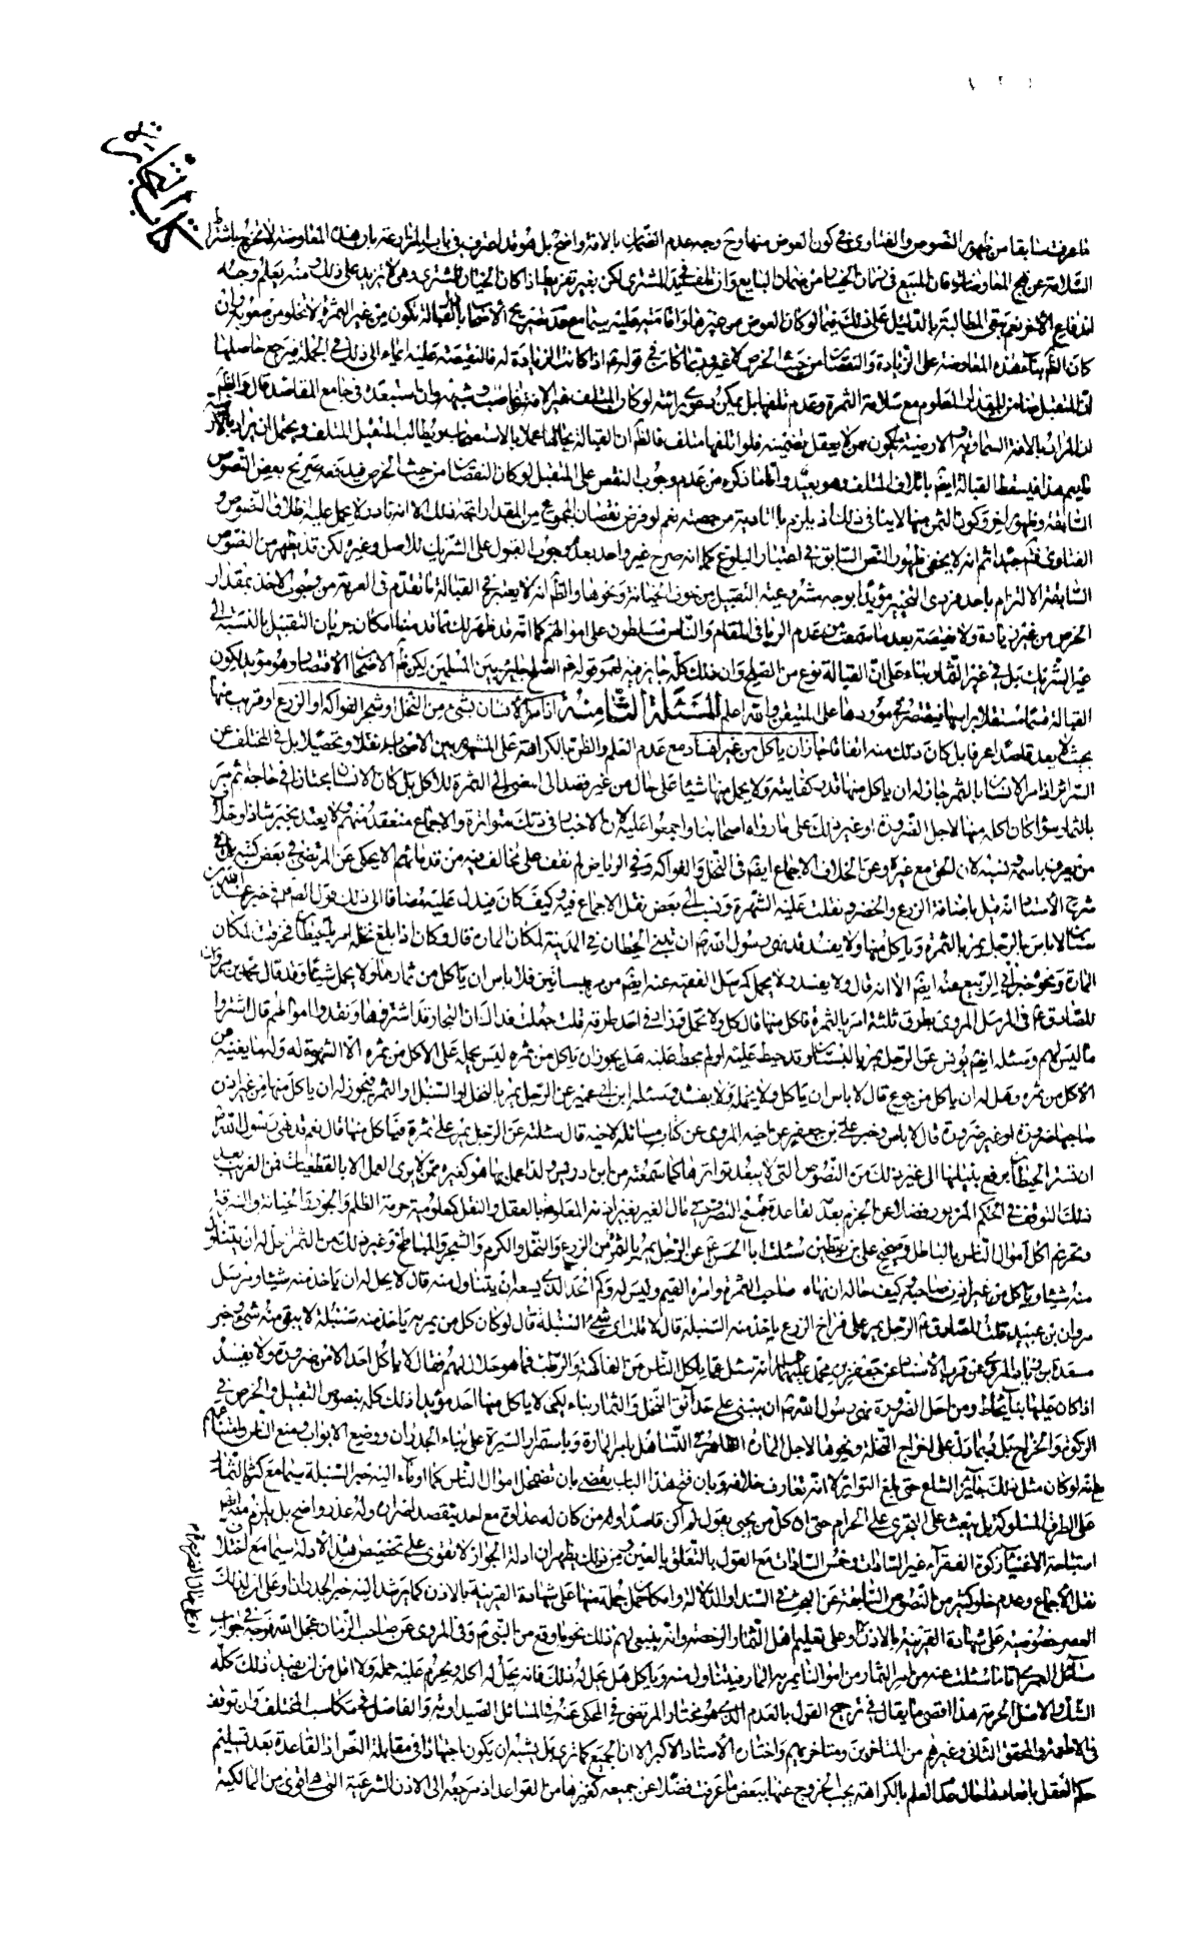 كتاب التجارة
ما عرفت سابقا من ظهور النصوص والفتاوى في كون العوض منها وح وجه عدم الضمان بالافة واضح بل هو قد اعترف في باب المزارعة بان هذه المعاوضة لا تخرج باشتراط
السلامة عن نهج المعاوضات فان المبيع في زمان الخيار من ضمان البايع وان تلف في يد المشتري لكن بغير تفريط اذا كان الخيار للمشتري وهي لا تزيد على ذلك ومنه يعلم وجه
اندفاع الاخر نعم يبقى المطالبة بالدليل على ذلك فيما لو كان العوض من غيرها
كان الظ بناء هذه المعاوضة على الزيادة والنقصان من حيث الخرص لا غير وربما كان في قوله ثم اذا كانت الزيادة له فالنقيصة عليه ايماء الى ذلك في الجملة فيرجع حاصلها
ان المتقبل ضامن للمقدار المعلوم مع سلامة الثمرة وعدم تلفها بل يمكن دعوى لو كان المتلف غير الافة كغاصب وشبهه وان استبعده في جامع المقاصد قال والظ
ان المراد بالافة السماوية والارضية من لا يعقل تضمينه فلو اتلفها متلف فالظ ان القبالة بحالها عملا بالاستصحاب ويطالب المتقبل المتلف ويحتمل ان يراد بالافة
ما يعم هذا فيسقط القبالة ايضم باتلاف المتلف وهو بعيد واما ما ذكره من عدم وجوب النقص على المتقبل لو كان النقصان من حيث الخرص فيدفعه صريح بعض النصوص
السابقة وظهور اخر وكون الثمن منها لا ينافي ذلك اذ يلزم بالتادية من حصته نعم لو فرض نقصان المجموع من المقدار اتجه ذلك الا انه نادر لا يحمل عليه اطلاق النصوص و
الفتاوى فتم جيدا ثم انه لا يخفى ظهور النص السابق في اعتبار البلوغ كما انه صرح غير واحد بعدم وجوب القبول على الشريك للاصل وغيره لكن قد يظهر من النصوص
السابقة الالزام باحد فردي التخيير مؤيدا بوجه مشروعية التقبيل من خوف الخيانة ونحوها والظ انه لا يعتبر في القبالة ما تقدم في العرية من وجوب الاخذ بمقدار
الخرص من غير زيادة ولا نقيصة بعد ما سمعت من عدم الربا في المقام والناس مسلطون على اموالهم كما انه قد ظهر لك مما قدمنا امكان جريان التقبيل بالنسبة الى
غير الشريك بل في غير الثمار بناء على ان القبالة نوع من الصلح وان ذلك كله جايز فيه لعموم قوله ثم الصلح جايز بين المسلمين لكن ظ الاصحاب الاقتصار وهو مؤيد لكون
القبالة قسما مستقلا براسها فيقتصر في موردها على المتيقن والله اعلم المسئلة الثامنة اذا مر الانسان بشيء من النخل او شجر الفواكه او الزرع او قريب منها
بحيث لا يعد قاصدا عرفا بل كان ذلك منه اتفاقا جاز ان ياكل من غير افساد مع عدم العلم والظن بالكراهة على المشهور بين الاصحاب نقلا وتحصيلا بل في المختلف عن
السرائر اذا مر الانسان بالثمر جاز له ان ياكل منها قدر كفايته ولا يحمل منها شيئا على حال من غير قصد الى المضي الى الثمرة للاكل بل كان الانسان مجتازا في حاجة ثم مر
بالثمار سواء كان اكله منها لاجل الضرورة او غير ذلك على ما رواه اصحابنا واجمعوا عليه لان الاخبار في ذلك متواترة والاجماع منعقد منهم ولا يعتد بخبر شاذ او خلاف
من يعرف باسمه ونسبه انتهى مع غيره وعن الخلاف الاجماع ايضم في النخل والفواكه وفي الرياض لم نقف على مخالف فيه من قدمائهم الا ما يحكى عن المرتضى في بعض كتبه بل في
شرح الاستاد انه قبل باضافة الزرع والخضر ونقلت عليه الشهرة ونسب الى بعض نقل الاجماع فيه وكيف كان فيدل عليه مضافا الى ذلك قول الصم في خبر عبد الله بن
سنان لا باس بالرجل يمر بالثمرة وياكل منها ولا يفسد قد نهى رسول الله ثم ان تبنى الحيطان في المدينة لمكان المارة قال وكان اذا بلغ نخله امر بالحيطان فخرقت لمكان
المارة ونحوه خبر ابي الربيع عنه ايضم الا انه قال ولا يفسد ولا يحمل كمرسل الفقيه عنه ايضم من مر ببساتين فلا باس ان ياكل من ثمارها ولا يحمل شيئا وقد قال محمد بن مروان
للصادق عم في المرسل المروي بطرق ثلثة امر بالثمرة فاكل منها قال كل ولا تحمل وزاد في احد طرقه قلت جعلت فداك ان التجار قد اشتروها ونقدوا اموالهم قال اشتروا
ما ليس لهم وسئله ايضم يونس عن الرجل يمر بالبستان وقد حيط عليه او لم يحط عليه هل يجوز ان ياكل من ثمره ليس يحمله على الاكل من ثمره الا الشهوة له وله ما يغنيه عن
الاكل من ثمره وهل له ان ياكل من جوع قال لا باس ان ياكل ولا يحمله ولا يفسد وسئله ابن ابي عمير عن الرجل يمر بالنخل والسنبل والثمر فيجوز له ان ياكل منها من غير اذن
صاحبها من ضرورة او غير ضرورة قال لا باس وخبر علي بن جعفر عن اخيه المروي عن كتاب مسائله لاخيه قال سئلته عن الرجل يمر على ثمرة فياكل منها قال نعم قد نهى رسول الله ثم
ان تستر الحيطان برفع بنائها الى غير ذلك من النصوص التي لا يبعد تواترها كما سمعته من ابن ادريس ولذا عمل بها هو كغيره ممن لا يرى العمل الا بالقطعيات فمن الغريب بعد
ذلك التوقف في الحكم المزبور فضلا عن الجزم بعدمه لقاعدة قبح التصرف في مال الغير بغير اذنه المعلوم بالعقل والنقل كمعلومية حرمة الظلم والجور والخيانة والسرقة
وتحريم اكل اموال الناس بالباطل وصحيح علي بن يقطين سئلت ابا الحسن عم عن الرجل يمر بالثمرة من الزرع والنخل والكرم والشجر والمباطخ وغير ذلك من الثمر حل له ان يتناول
منه شيئا وياكل من غير اذن صاحبه وكيف حاله ان نهاه صاحب الثمرة وامره القيم وليس له وكم الحد الذي يسعه ان يتناول منه قال لا يحل له ان ياخذ منه شيئا ومرسل
مروان بن عبيد قلت للصادق عم الرجل يمر على قراح الزرع ياخذ منه السنبلة قال لا قلت اي شيء السنبلة قال لو كان كل من يمر به ياخذ منه سنبلة لا يبقى منه شيء وخبر
مسعدة بن زياد المروي عن قرب الاسناد عن جعفر بن محمد عليهما السلام انه سئل عما ياكل الناس من الفاكهة والرطب مما هو حلال لهم فقال لا ياكل احد الا من ضرورة ولا يفسد
اذا كان عليها بناء محاط ومن اجل الضرورة نهى رسول الله ثم ان يبنى على حدائق النخل والثمار بناء لكي لا ياكل منها احد مؤيدا ذلك كله بنصوص التقبيل والخرص في
الزكوة والخراج بل بما دل على اخراج النخلة ونحوها لاجل المارة الظاهر في التساهل بامر المارة وباستمرار السيرة على بناء الجدران ووضع الابواب ومنع الناس واستيام
انه لو كان مثل ذلك جايزا لشاع حتى بلغ التواتر لانه تعارف خلافه وبان فتح هذا الباب يقضي بان تضمحل اموال الناس كما اومأ اليه خبر السنبلة سيما مع كثرة الثمار
على الطرق المسلوكة بل يبعث على التجري على الحرام حتى ان كل من يجيء يقول لم اكن قاصدا وله من كان له عداوة مع احد يقصد اضراره وله عذر واضح بل يلزم منه
استباحة الاغنياء زكوة الفقراء غير السادات وخمس السادات مع القول بالتعلق بالعين ومن ذلك يظهر ان ادلة الجواز لا تقوى على تخصيص مثل الادلة سيما مع اختلاف
نقل الاجماع وعدم خلو كثير من النصوص السابقة عن البحث في السند او الدلالة وامكان حمل جملة منها على شهادة القرينة بالاذن كما يرشد اليه خبر الجدران او على ان لذلك
العصر خصوصية على شهادة القرينة بالاذن او على تعليم اهل الثمار الرخصة وانه ينبغي لهم ذلك نحو ما وقع من النبي ثم وفي المروي عن صاحب الزمان عجل الله فرجه في جواب
مسائل العمري واما ما سئلت عنه من امر الثمار من اموالنا يمر به المار فيتناول منه وياكل هل يحل له ذلك فانه يحل له اكله ويحرم عليه حمله ولا اقل من ان يفيد ذلك كله
الشك والاصل الحرمة هذا اقصى ما يقال في ترجيح القول بالعدم الذي هو مختار المرتضى في المحكي عنه في المسائل الصيداوية والفاضل في مكاسب المختلف وان توقف
في الاطعمة والمحقق الثاني وغيرهم من المتاخرين ومتاخريهم واختاره الاستاد الاكبر الا ان الجميع كما ترى بل يشبه ان يكون اجتهادا في مقابلة النص اذ القاعدة بعد تسليم
حكم العقل بافرادها حال عدم العلم بالكراهة يجب الخروج عنها ببعض ما عرفت فضلا عن جميعه كغيرها من القواعد اذ مرجعه الى الاذن الشرعية التي هي اقوى من المالكية